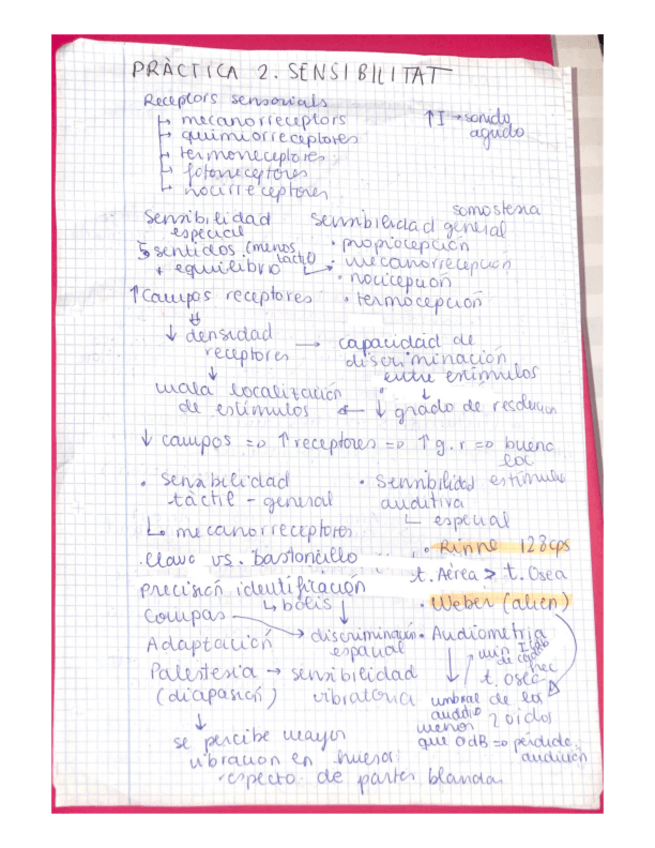 PRÀCTICA 2. SENSIBILITAT
Receptors sensorials
↳ mecanorreceptors
↳ quimiorreceptores
↳ termoreceptores
↳ fotoreceptores
↳ nocirreceptores
↑I → sonido
agudo
Sensibilidad
especial
5 sentidos (menos
táctil)
+ equilibrio
somostesia
Sensibilidad general
• propiocepción
• mecanorrecepción
• nocicepción
• termocepción
↑ Campos receptores
⇓
↓ densidad
receptores → capacidad de
discriminación
entre estímulos
↓
↓ grado de resolución
↓
mala localización
de estímulos ←
↓ campos => ↑ receptores => ↑ g.r => buena
loc
estímulos
• Sensibilidad
táctil - general
↳ mecanorreceptores
• clavo vs. bastoncillo
precisión identificación
↳ bolis
Compas → discriminación
espacial
Adaptación
Palestesia → sensibilidad
(diapasión) vibratoria
↓
se percibe mayor
vibracion en huesos
respecto de partes blandas
• Sensibilidad
auditiva
↳ especial
• Rinne 128cps
t. Aérea > t. Osea
• Weber (alien)
• Audiometria
min I
de cada
t. osea
umbral de la
audio
2 oidos
menor
que 0dB => perdida
audición